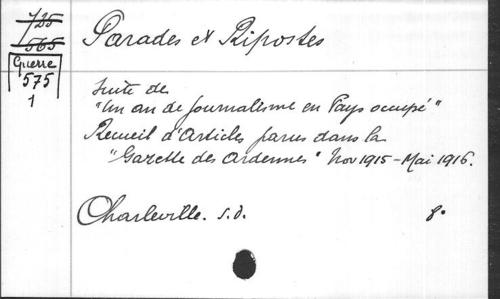 725
565
Guerre
575
1
Parades et Ripostes
Suite de
"Un an de journalisme en Pays occupé"
Recueil d'Articles parus dans la
"Gazette des Ardennes" Nov 1915-Mai 1916.
Charleville. s.d. 8°